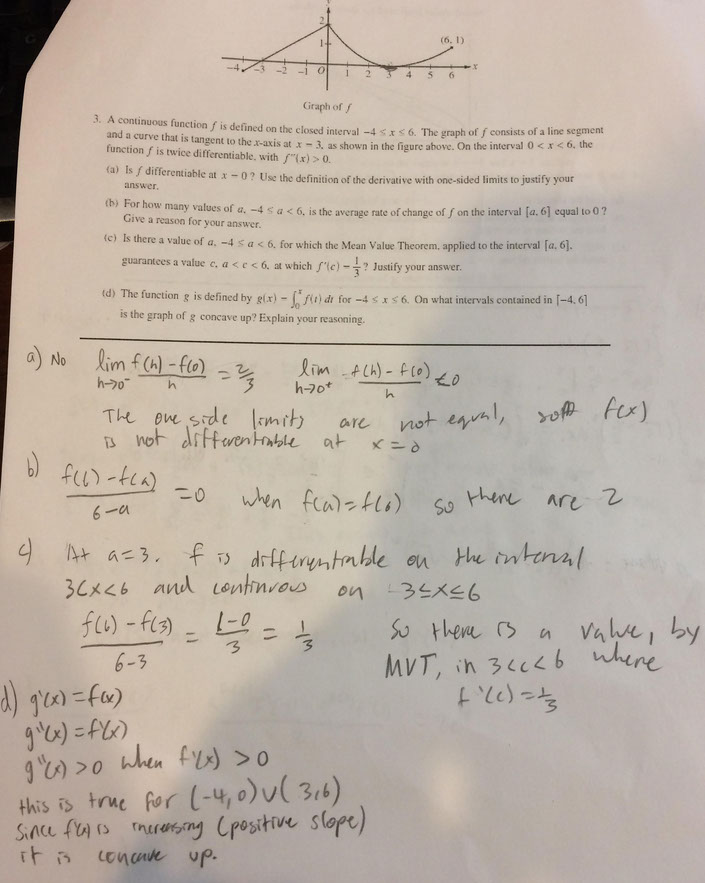 2
1
(6, 1)
-4 -3 -2 -1 O 1 2 3 4 5 6 x
Graph of f
3. A continuous function f is defined on the closed interval −4 ≤ x ≤ 6. The graph of f consists of a line segment
and a curve that is tangent to the x-axis at x = 3, as shown in the figure above. On the interval 0 < x < 6, the
function f is twice differentiable, with f''(x) > 0.
(a) Is f differentiable at x = 0? Use the definition of the derivative with one-sided limits to justify your
answer.
(b) For how many values of a, −4 ≤ a < 6, is the average rate of change of f on the interval [a, 6] equal to 0?
Give a reason for your answer.
(c) Is there a value of a, −4 ≤ a < 6, for which the Mean Value Theorem, applied to the interval [a, 6],
guarantees a value c, a < c < 6, at which f'(c) = 1/3? Justify your answer.
(d) The function g is defined by g(x) = ∫₀ˣ f(t) dt for −4 ≤ x ≤ 6. On what intervals contained in [−4, 6]
is the graph of g concave up? Explain your reasoning.
a) No lim h→0⁻ f(h)-f(0)/h = 2/3 lim h→0⁺ f(h)-f(0)/h < 0
The one side limits are not equal, so f(x)
is not differentiable at x=0
b) f(6)-f(a)/6-a = 0 when f(a)=f(6) so there are 2
c) At a=3. f is differentiable on the interval
3<x<6 and continuous on 3≤x≤6
f(6)-f(3)/6-3 = 1-0/3 = 1/3 So there is a value, by
MVT, in 3<c<6 where
f'(c)=1/3
d) g'(x)=f(x)
g''(x)=f'(x)
g''(x)>0 when f'(x)>0
this is true for (-4,0)∪(3,6)
Since f(x) is increasing (positive slope)
it is concave up.